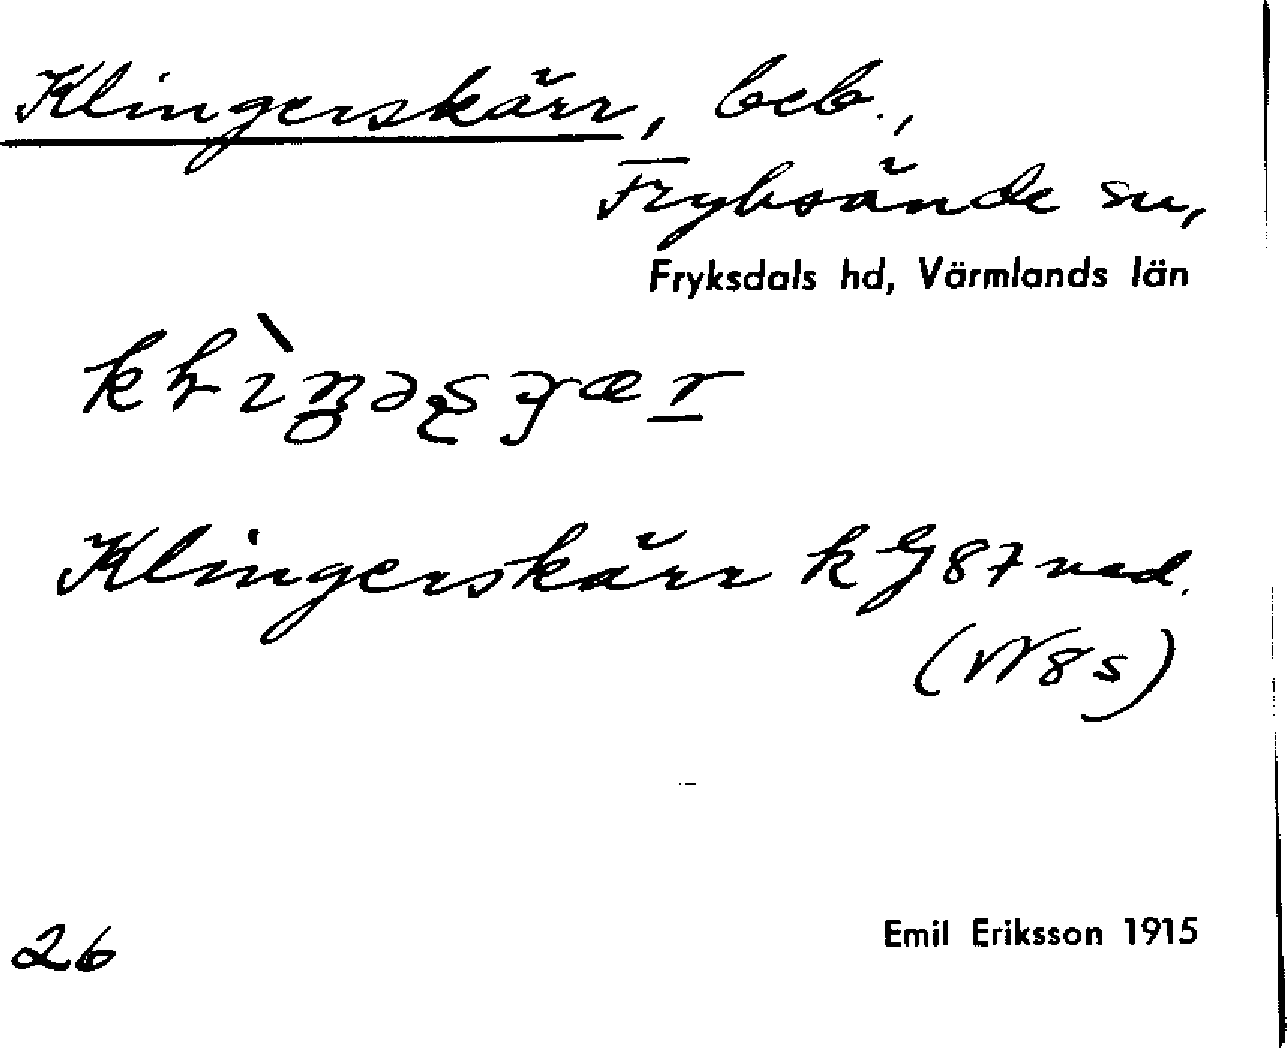 Klingerskärr, beb.,
Fryksände sn,
Fryksdals hd, Värmlands län
Klingerskärr k G 87 ned.
(NV 8 s)
26
Emil Eriksson 1915